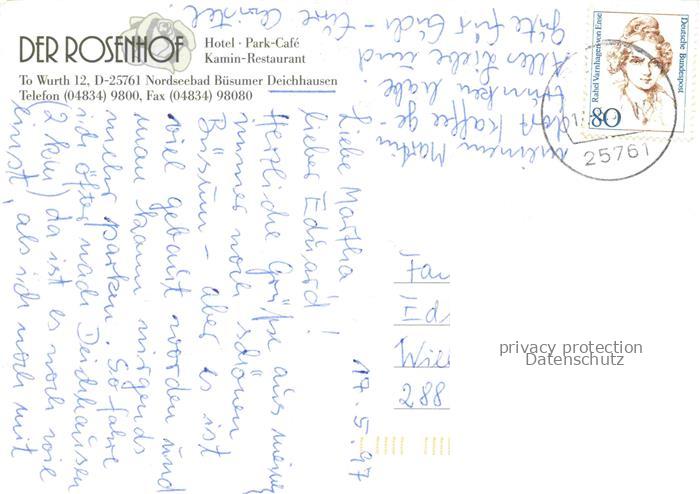 DER ROSENHOF
Hotel · Park-Café
Kamin-Restaurant
To Wurth 12, D-25761 Nordseebad Büsumer Deichhausen
Telefon (04834) 9800, Fax (04834) 98080
17.5.97
Liebe Martha
lieber Eduard!
Herzliche Grüße aus meinem
immer noch schönen
Büsum - aber es ist
viel gebaut worden und
man kann nirgends
mehr parken. So fahre
ich öfter nach Deichhausen
(2 km) da ist es noch wie
einst, als ich noch mit
meinem Martin
dort Kaffee ge-
trunken habe.
Alles Liebe und
Gute für Euch - Eure Christel.
Deutsche Bundespost
Rahel Varnhagen von Ense
80
25761
Fa
Ed
Wie
288
privacy protection
Datenschutz